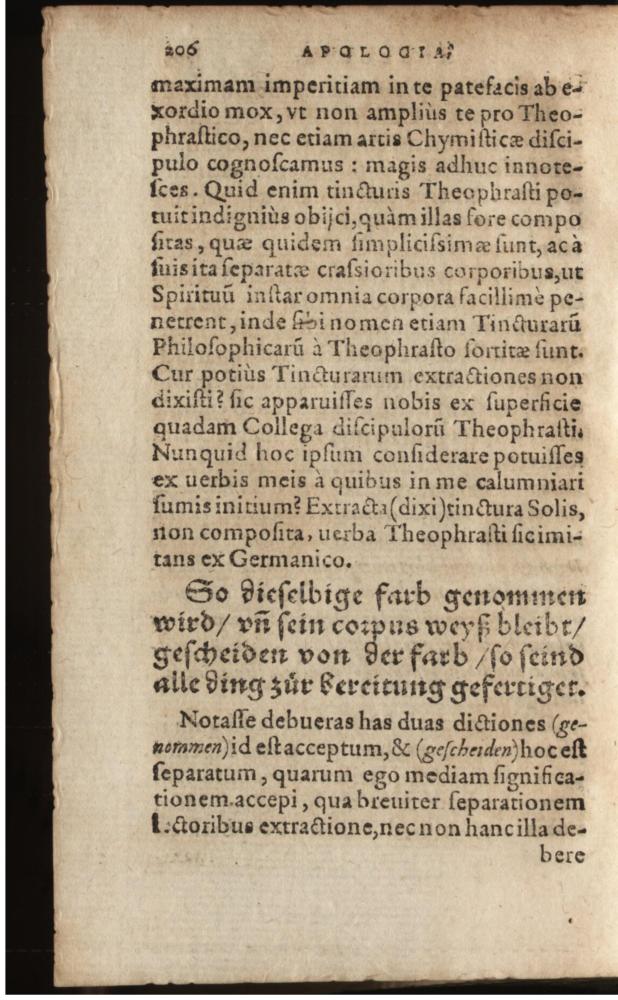 206 APOLOGIA,
maximam imperitiam in te patefacis ab e-
xordio mox, vt non ampliùs te pro Theo-
phrastico, nec etiam artis Chymisticæ disci-
pulo cognoscamus : magis adhuc innote-
sces. Quid enim tincturis Theophrasti po-
tuit indigniùs obijci, quàm illas fore compo
sitas, quæ quidem simplicissimæ sunt, ac à
suis ita separatæ crassioribus corporibus, ut
Spirituũ instar omnia corpora facillimè pe-
netrent, inde sibi nomen etiam Tincturarũ
Philosophicarũ à Theophrasto sortitæ sunt.
Cur potiùs Tincturarum extractiones non
dixisti? sic apparuisses nobis ex superficie
quadam Collega discipulorũ Theophrasti.
Nunquid hoc ipsum considerare potuisses
ex uerbis meis à quibus in me calumniari
sumis initium? Extracta (dixi) tinctura Solis,
non composita, uerba Theophrasti sic imi-
tans ex Germanico.
So dieselbige farb genommen
wird/ vñ sein corpus weyß bleibt/
gescheiden von der farb / so seind
alle ding zůr bereitung gefertiget.
Notasse debueras has duas dictiones (ge-
nommen) id est acceptum, & (gescheiden) hoc est
separatum, quarum ego mediam significa-
tionem accepi, qua breuiter separationem
Lectoribus extractione, nec non hanc illa de-
bere